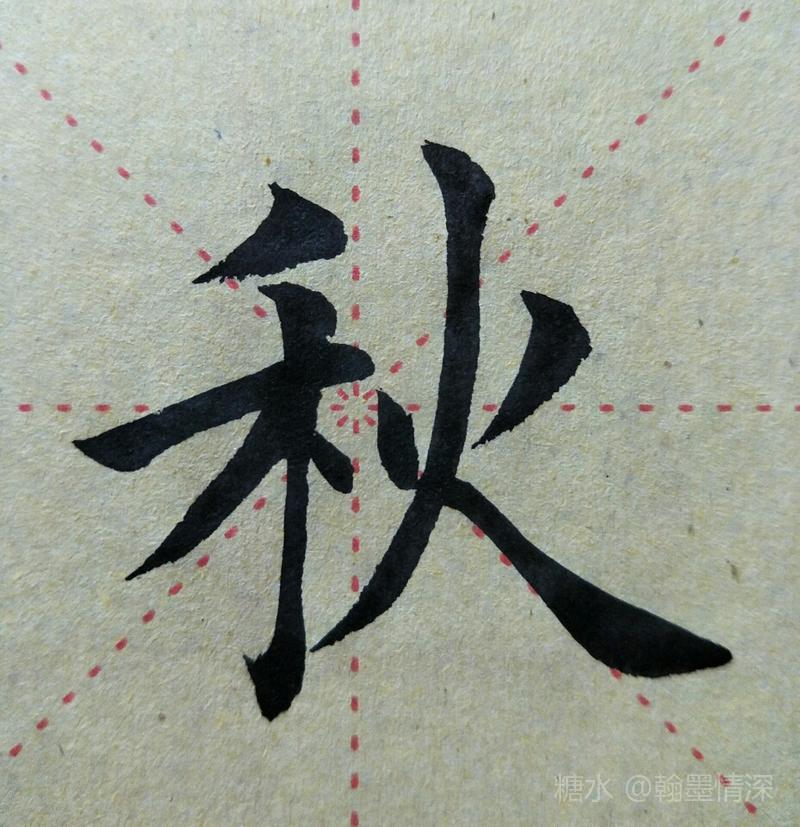 秋
糖水 @翰墨情深